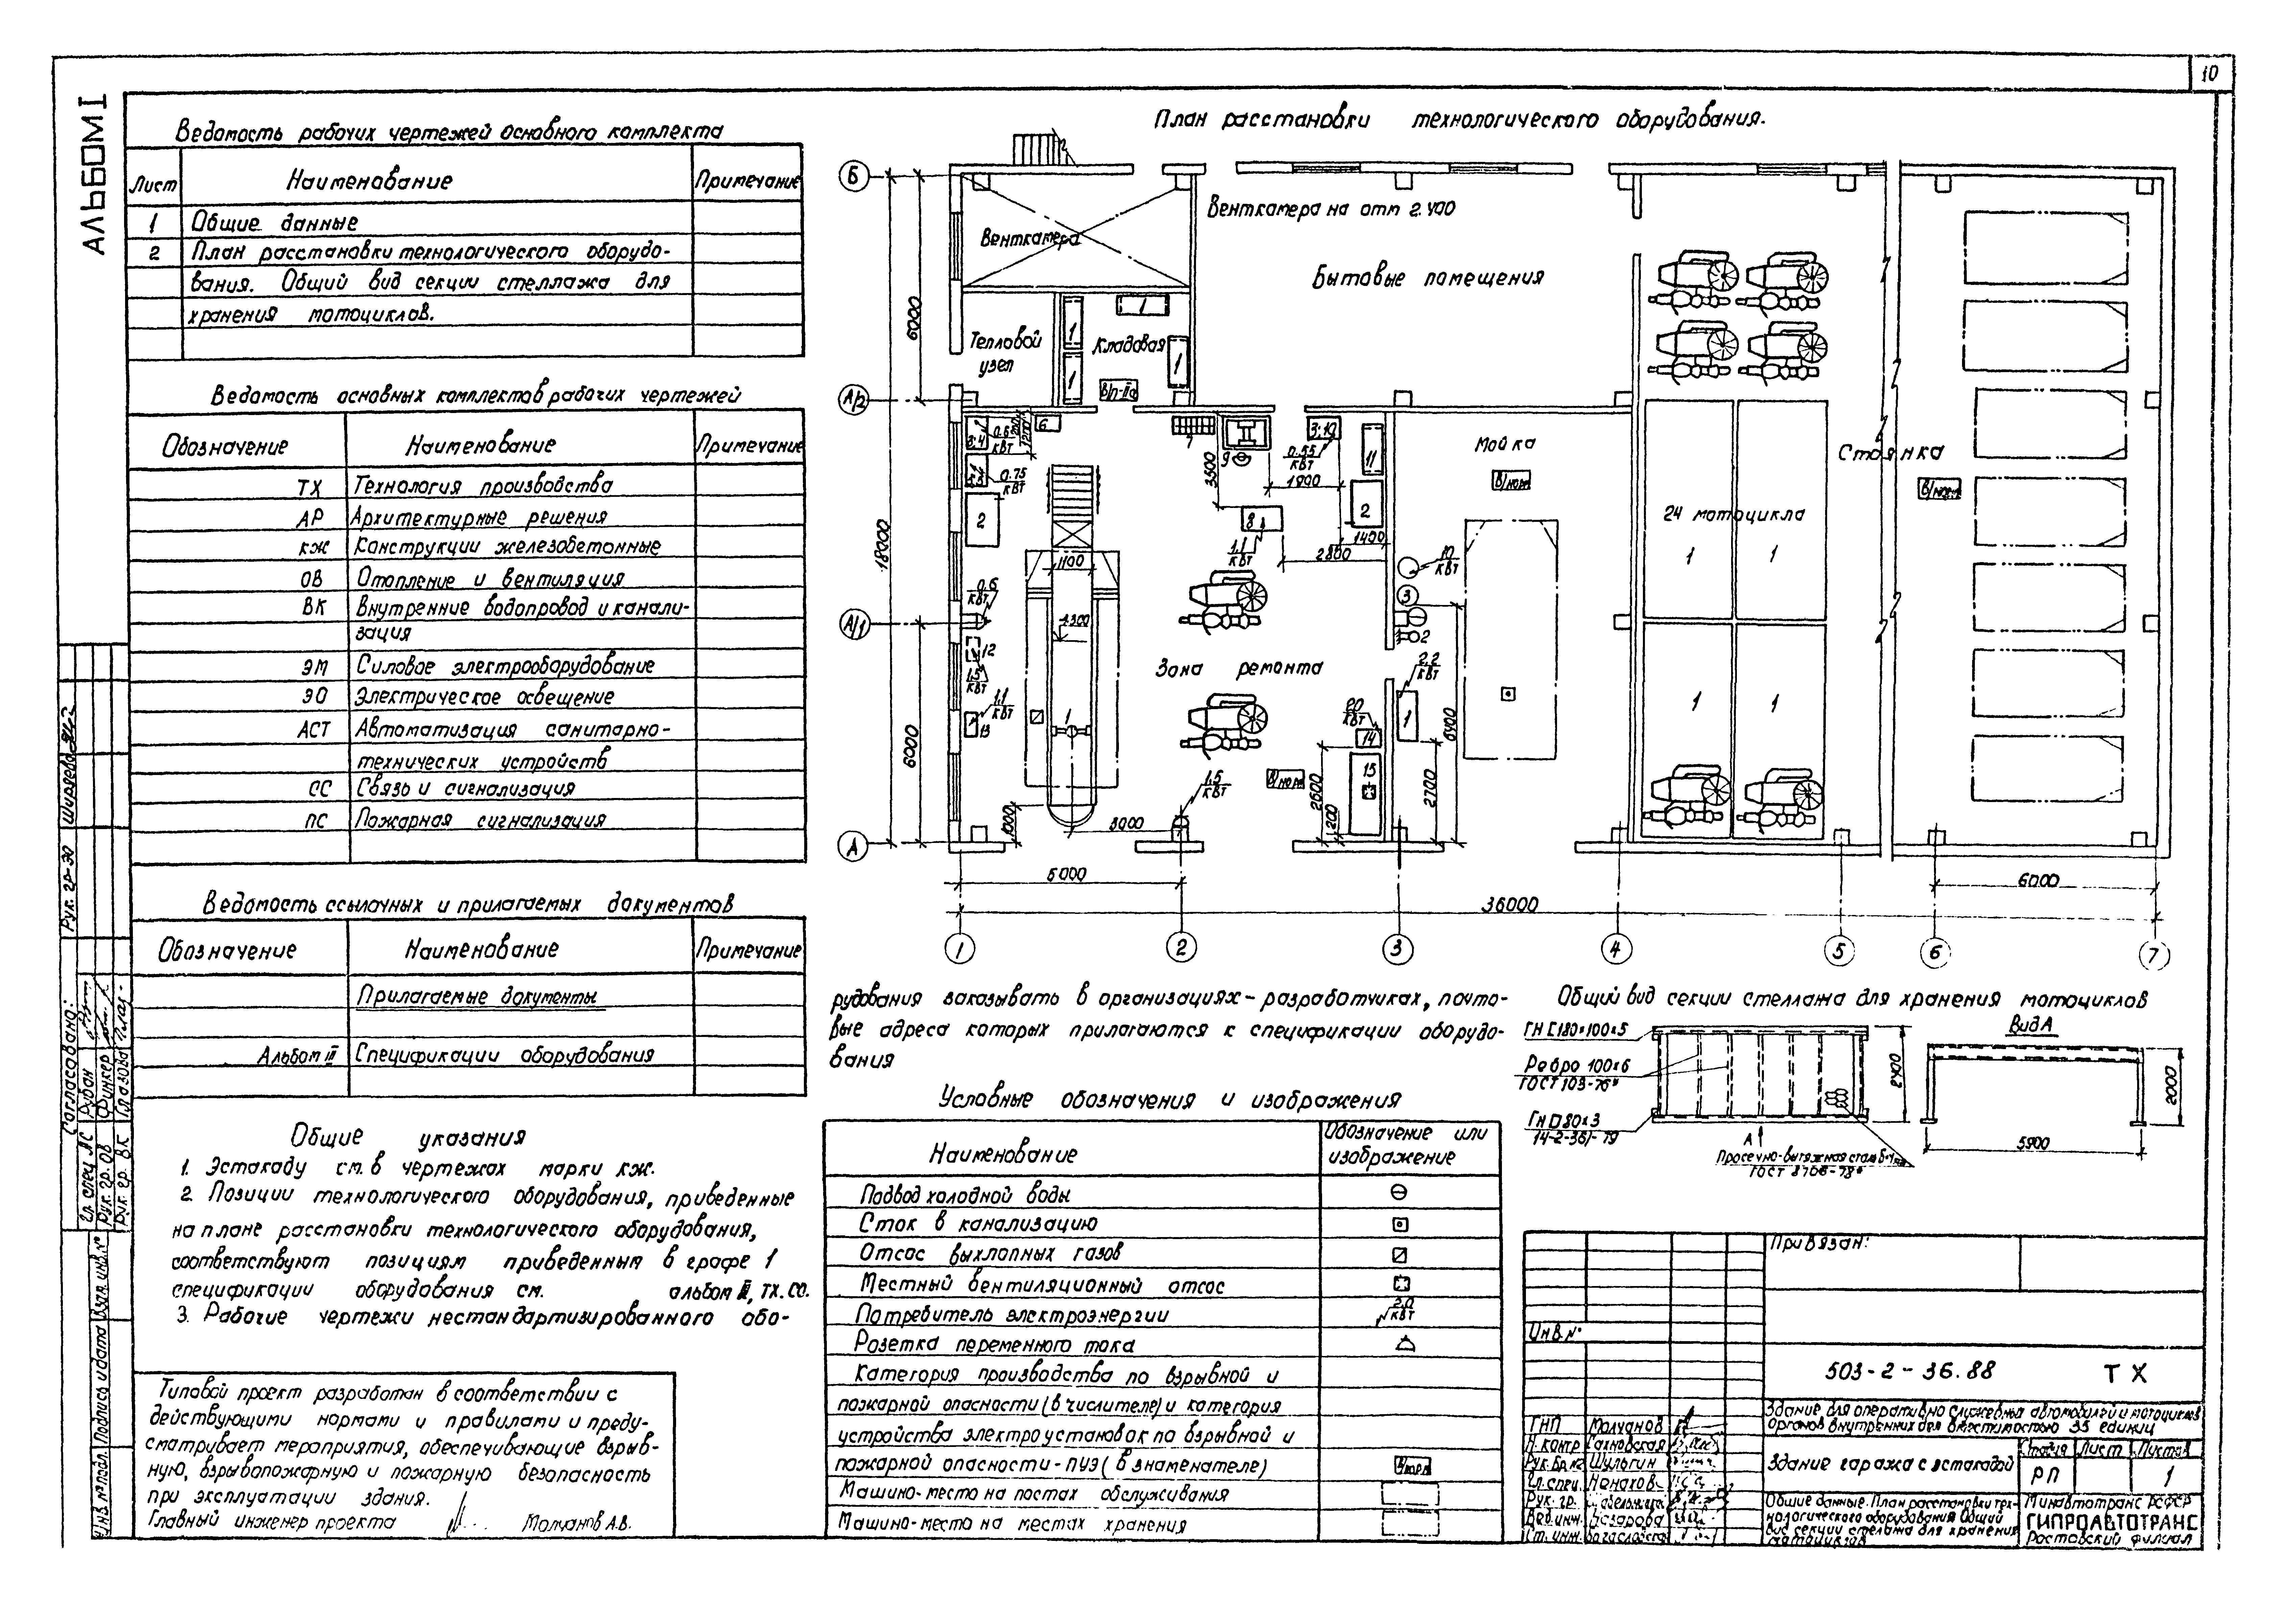 10
АЛЬБОМ I
Ведомость рабочих чертежей основного комплекта
Лист Наименование Примечание
1 Общие данные
2 План расстановки технологического оборудо-
вания. Общий вид секции стеллажа для
хранения мотоциклов.
Ведомость основных комплектов рабочих чертежей
Обозначение Наименование Примечание
ТХ Технология производства
АР Архитектурные решения
КЖ Конструкции железобетонные
ОВ Отопление и вентиляция
ВК Внутренние водопровод и канали-
зация
ЭМ Силовое электрооборудование
ЭО Электрическое освещение
АСТ Автоматизация санитарно-
технических устройств
СС Связь и сигнализация
ПС Пожарная сигнализация
Ведомость ссылочных и прилагаемых документов
Обозначение Наименование Примечание
Прилагаемые документы
Альбом III Спецификации оборудования
Общие указания
1. Эстакаду см. в чертежах марки КЖ.
2. Позиции технологического оборудования, приведенные
на плане расстановки технологического оборудования,
соответствуют позициям приведенным в графе 1
спецификации оборудования см. альбом III, ТХ.СО.
3. Рабочие чертежи нестандартизированного обо-
Типовой проект разработан в соответствии с
действующими нормами и правилами и преду-
сматривает мероприятия, обеспечивающие взрыв-
ную, взрывопожарную и пожарную безопасность
при эксплуатации здания.
Главный инженер проекта Молчанов А.В.
План расстановки технологического оборудования.
Б
А/2
А/1
А
18000
6000
6000
Венткамера
Венткамера на отм 2.400
Бытовые помещения
Тепловой
узел
Кладовая
1
1
1
1
В/П-IIа
3;4
0.6
кВт
1200
6
0.75
кВт
2
7
9
3500
3;10
0.55
кВт
1900
11
2
1400
8
1.1
кВт
2800
1100
0.6
кВт
12
1.5
кВт
1.1
кВт
13
1
Зона ремонта
1.5
кВт
В/норм
1000
3000
20
кВт
14
15
2600
1200
Мойка
В/норм
10
кВт
3
2
2.2
кВт
1
6400
2700
24 мотоцикла
1
1
1
1
Стоянка
В/норм
6000
6000
36000
1 2 3 4 5 6 7
рудования заказывать в организациях-разработчиках, почто-
вые адреса которых прилагаются к спецификации оборудо-
вания
Условные обозначения и изображения
Наименование Обозначение или
изображение
Подвод холодной воды
Сток в канализацию
Отсос выхлопных газов
Местный вентиляционный отсос
Потребитель электроэнергии 2.0
кВт
Розетка переменного тока
Категория производства по взрывной и
пожарной опасности (в числителе) и категория
устройства электроустановок по взрывной и
пожарной опасности-ПУЭ (в знаменателе) В/норм
Машино-место на постах обслуживания
Машино-место на местах хранения
Общий вид секции стеллажа для хранения мотоциклов
Вид А
ГН С180×100×5
Ребро 100×6
ГОСТ 103-76*
2400
2000
5900
А
Просечно-вытяжная сталь
ГОСТ 8706-78*
Привязан:
Инв.№
503-2-36.88 ТХ
Здание для оперативно служебных автомобилей и мотоциклов
органов внутренних дел вместимостью 35 единиц
ГИП Молчанов
Н.контр Сахновская
Рук.бриг Шульгин
Гл.спец.
Рук. гр.
Вед.инж.
Ст. инж.
Здание гаража с эстакадой
Стадия Лист Листов
РП 1
Общие данные. План расстановки тех-
нологического оборудования Общий
вид секции стелажа для хранения
мотоциклов
Минавтотранс РСФСР
ГИПРОАВТОТРАНС
Ростовский филиал
Согласовано:
Гл. спец. АС Рубан
Рук. гр. ОВ Функер
Рук. гр. ВК Глазова
Рук. гр-ЭО Ширяева
Инв.№ подл. Подпись и дата Взам. инв.№